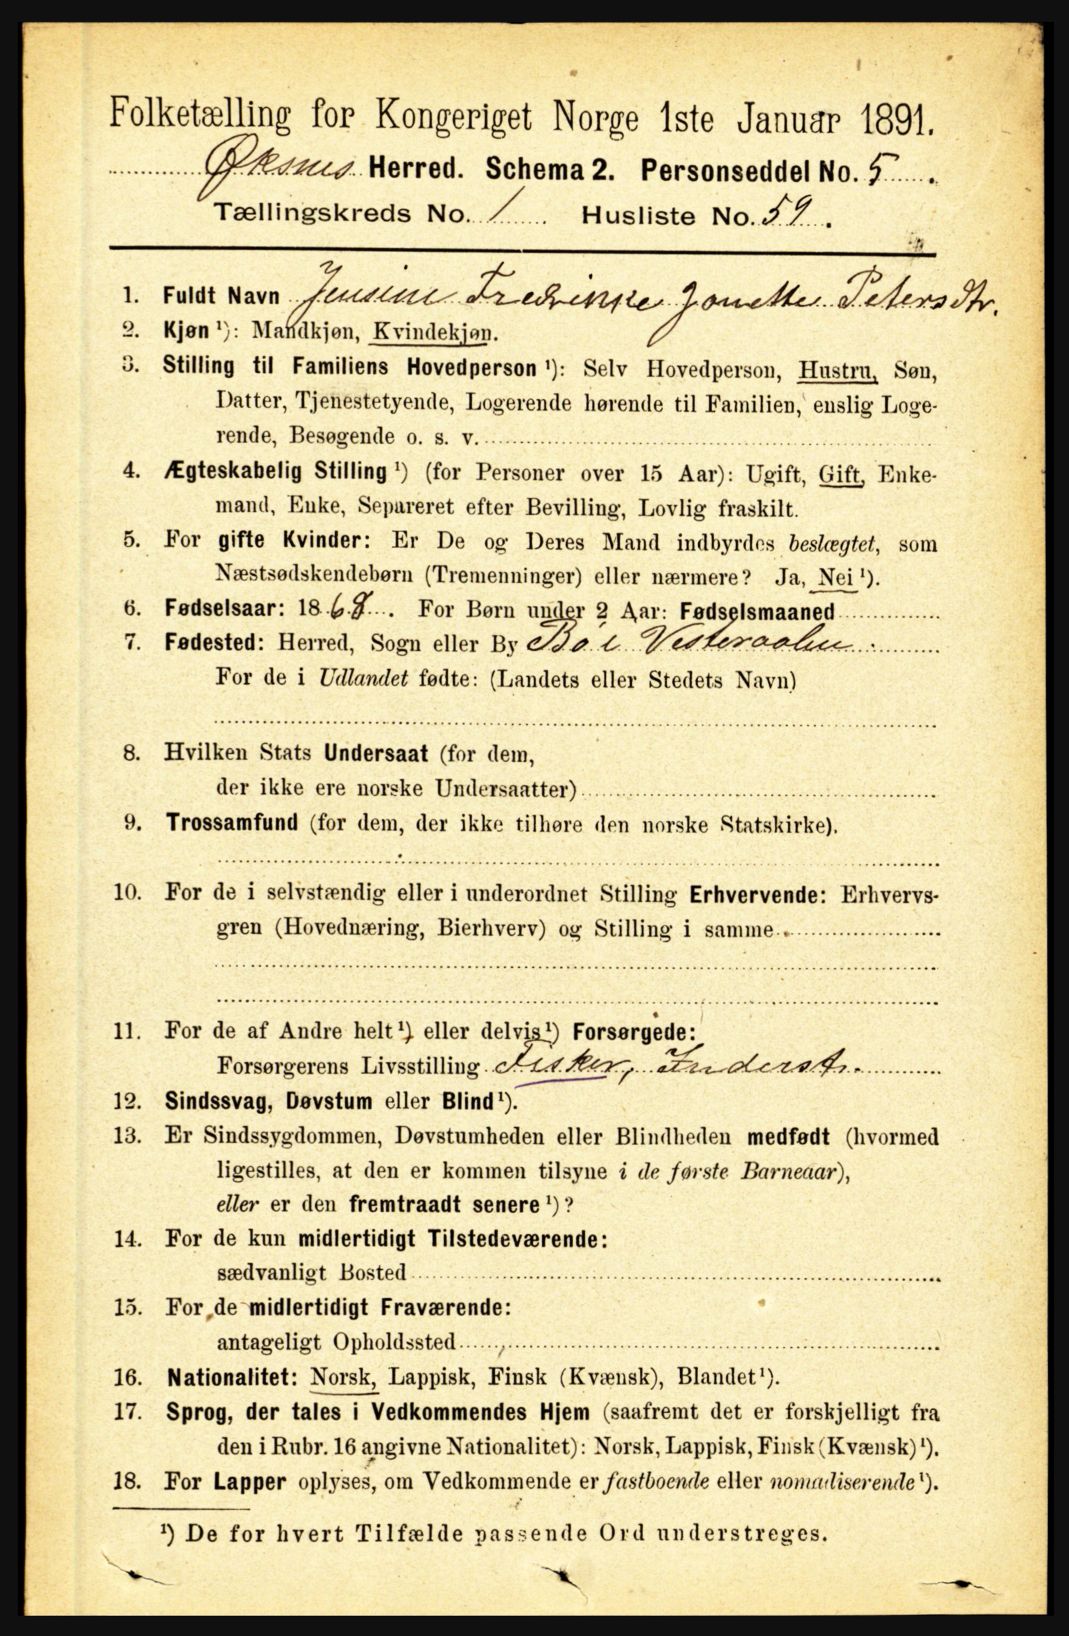 Folketælling for Kongeriget Norge 1ste Januar 1891.
Øksnes Herred. Schema 2. Personseddel No. 5.
Tællingskreds No. 1 Husliste No. 59.
1. Fuldt Navn Jensine Fredrikke Jonette Petersdtr.
2. Kjøn ¹): Mandkjøn, Kvindekjøn.
3. Stilling til Familiens Hovedperson ¹): Selv Hovedperson, Hustru, Søn,
Datter, Tjenestetyende, Logerende hørende til Familien, enslig Loge-
rende, Besøgende o. s. v.
4. Ægteskabelig Stilling ¹) (for Personer over 15 Aar): Ugift, Gift, Enke-
mand, Enke, Separeret efter Bevilling, Lovlig fraskilt.
5. For gifte Kvinder: Er De og Deres Mand indbyrdes beslægtet, som
Næstsødskendebørn (Tremenninger) eller nærmere? Ja, Nei ¹).
6. Fødselsaar: 1868. For Børn under 2 Aar: Fødselsmaaned
7. Fødested: Herred, Sogn eller By Bø i Vesteraalen
For de i Udlandet fødte: (Landets eller Stedets Navn)
8. Hvilken Stats Undersaat (for dem,
der ikke ere norske Undersaatter)
9. Trossamfund (for dem, der ikke tilhøre den norske Statskirke).
10. For de i selvstændig eller i underordnet Stilling Erhvervende: Erhvervs-
gren (Hovednæring, Bierhverv) og Stilling i samme
11. For de af Andre helt ¹) eller delvis ¹) Forsørgede:
Forsørgerens Livsstilling Fisker, Inderst.
12. Sindssvag, Døvstum eller Blind ¹).
13. Er Sindssygdommen, Døvstumheden eller Blindheden medfødt (hvormed
ligestilles, at den er kommen tilsyne i de første Barneaar),
eller er den fremtraadt senere ¹)?
14. For de kun midlertidigt Tilstedeværende:
sædvanligt Bosted
15. For de midlertidigt Fraværende:
antageligt Opholdssted
16. Nationalitet: Norsk, Lappisk, Finsk (Kvænsk), Blandet ¹).
17. Sprog, der tales i Vedkommendes Hjem (saafremt det er forskjelligt fra
den i Rubr. 16 angivne Nationalitet): Norsk, Lappisk, Finsk (Kvænsk) ¹).
18. For Lapper oplyses, om Vedkommende er fastboende eller nomadiserende ¹).
¹) De for hvert Tilfælde passende Ord understreges.